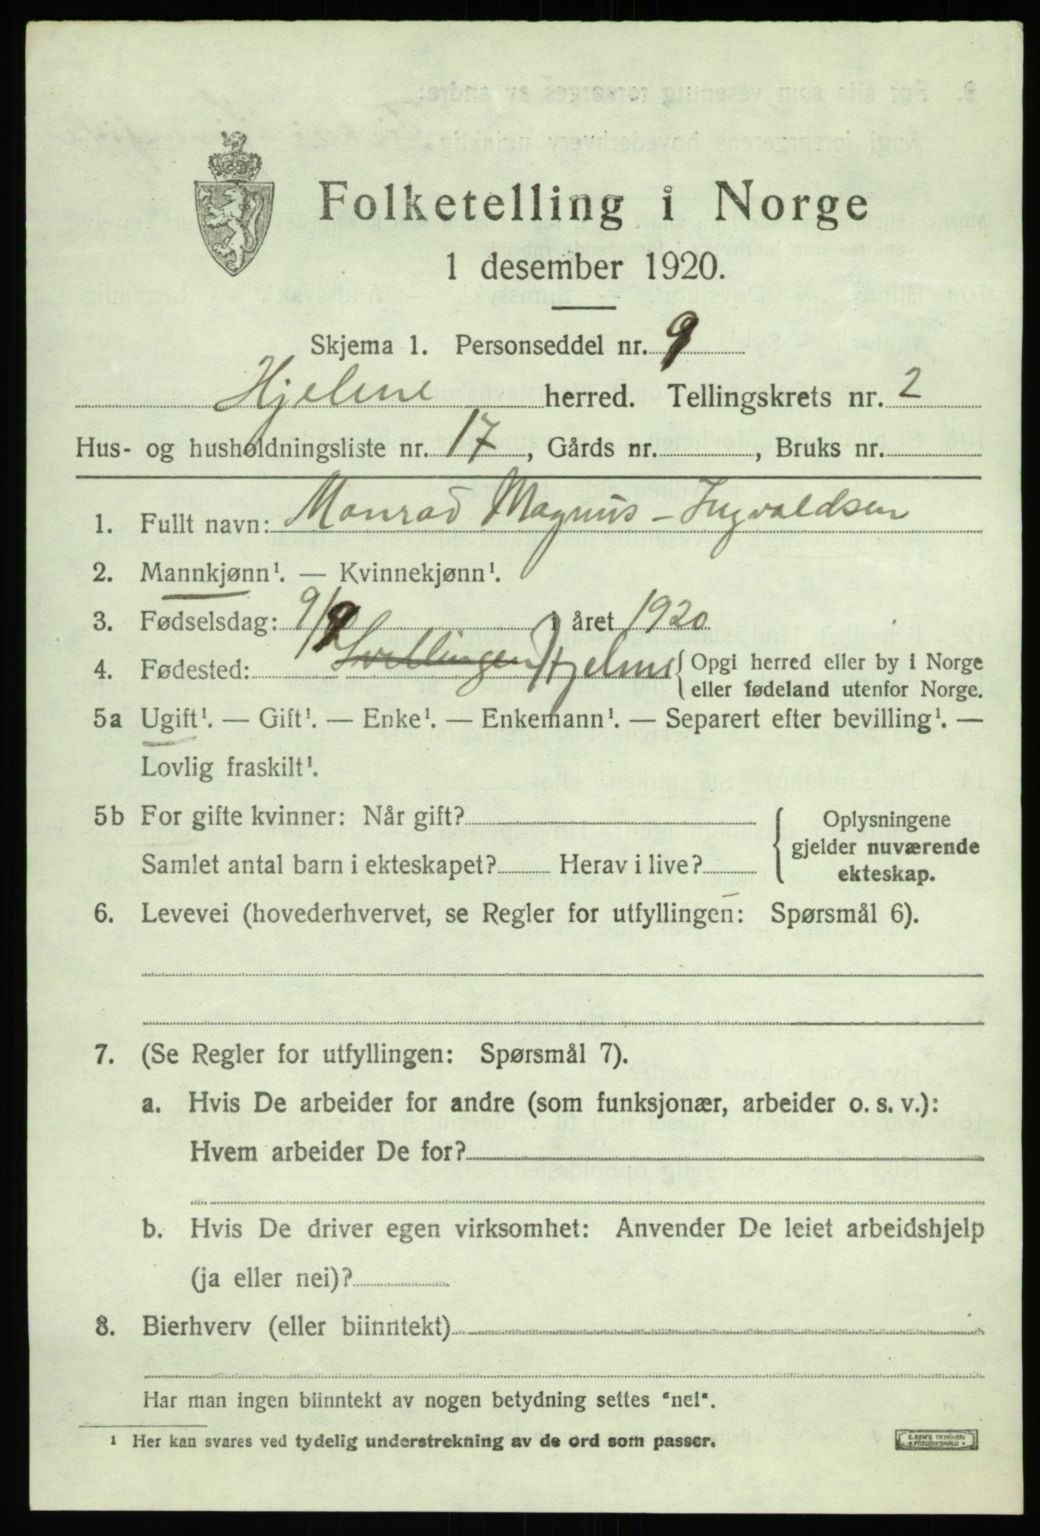 Folketelling i Norge
1 desember 1920.
Skjema 1. Personseddel nr. 9
Hjelme herred. Tellingskrets nr. 2
Hus- og husholdningsliste nr. 17, Gårds nr. , Bruks nr.
1. Fullt navn: Monrad Magnus - Ingvaldsen
2. Mannkjønn¹. — Kvinnekjønn¹.
3. Fødselsdag: 9/9 i året 1920
4. Fødested: Hjelme { Opgi herred eller by i Norge
eller fødeland utenfor Norge.
5a Ugift¹. — Gift¹. — Enke¹. — Enkemann¹. — Separert efter bevilling¹. —
Lovlig fraskilt¹.
5b For gifte kvinner: Når gift?
Samlet antal barn i ekteskapet? Herav i live?
Oplysningene
gjelder nuværende
ekteskap.
6. Levevei (hovederhvervet, se Regler for utfyllingen: Spørsmål 6).
7. (Se Regler for utfyllingen: Spørsmål 7).
a. Hvis De arbeider for andre (som funksjonær, arbeider o. s. v.):
Hvem arbeider De for?
b. Hvis De driver egen virksomhet: Anvender De leiet arbeidshjelp
(ja eller nei)?
8. Bierhverv (eller biinntekt)
Har man ingen biinntekt av nogen betydning settes "nei".
¹ Her kan svares ved tydelig understrekning av de ord som passer.